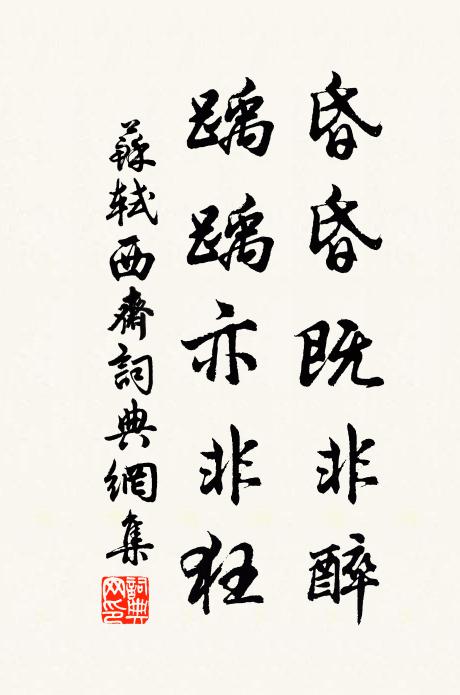 昏昏既非醉
踽踽亦非狂
蘇軾西齋詞典網集
詞典网印